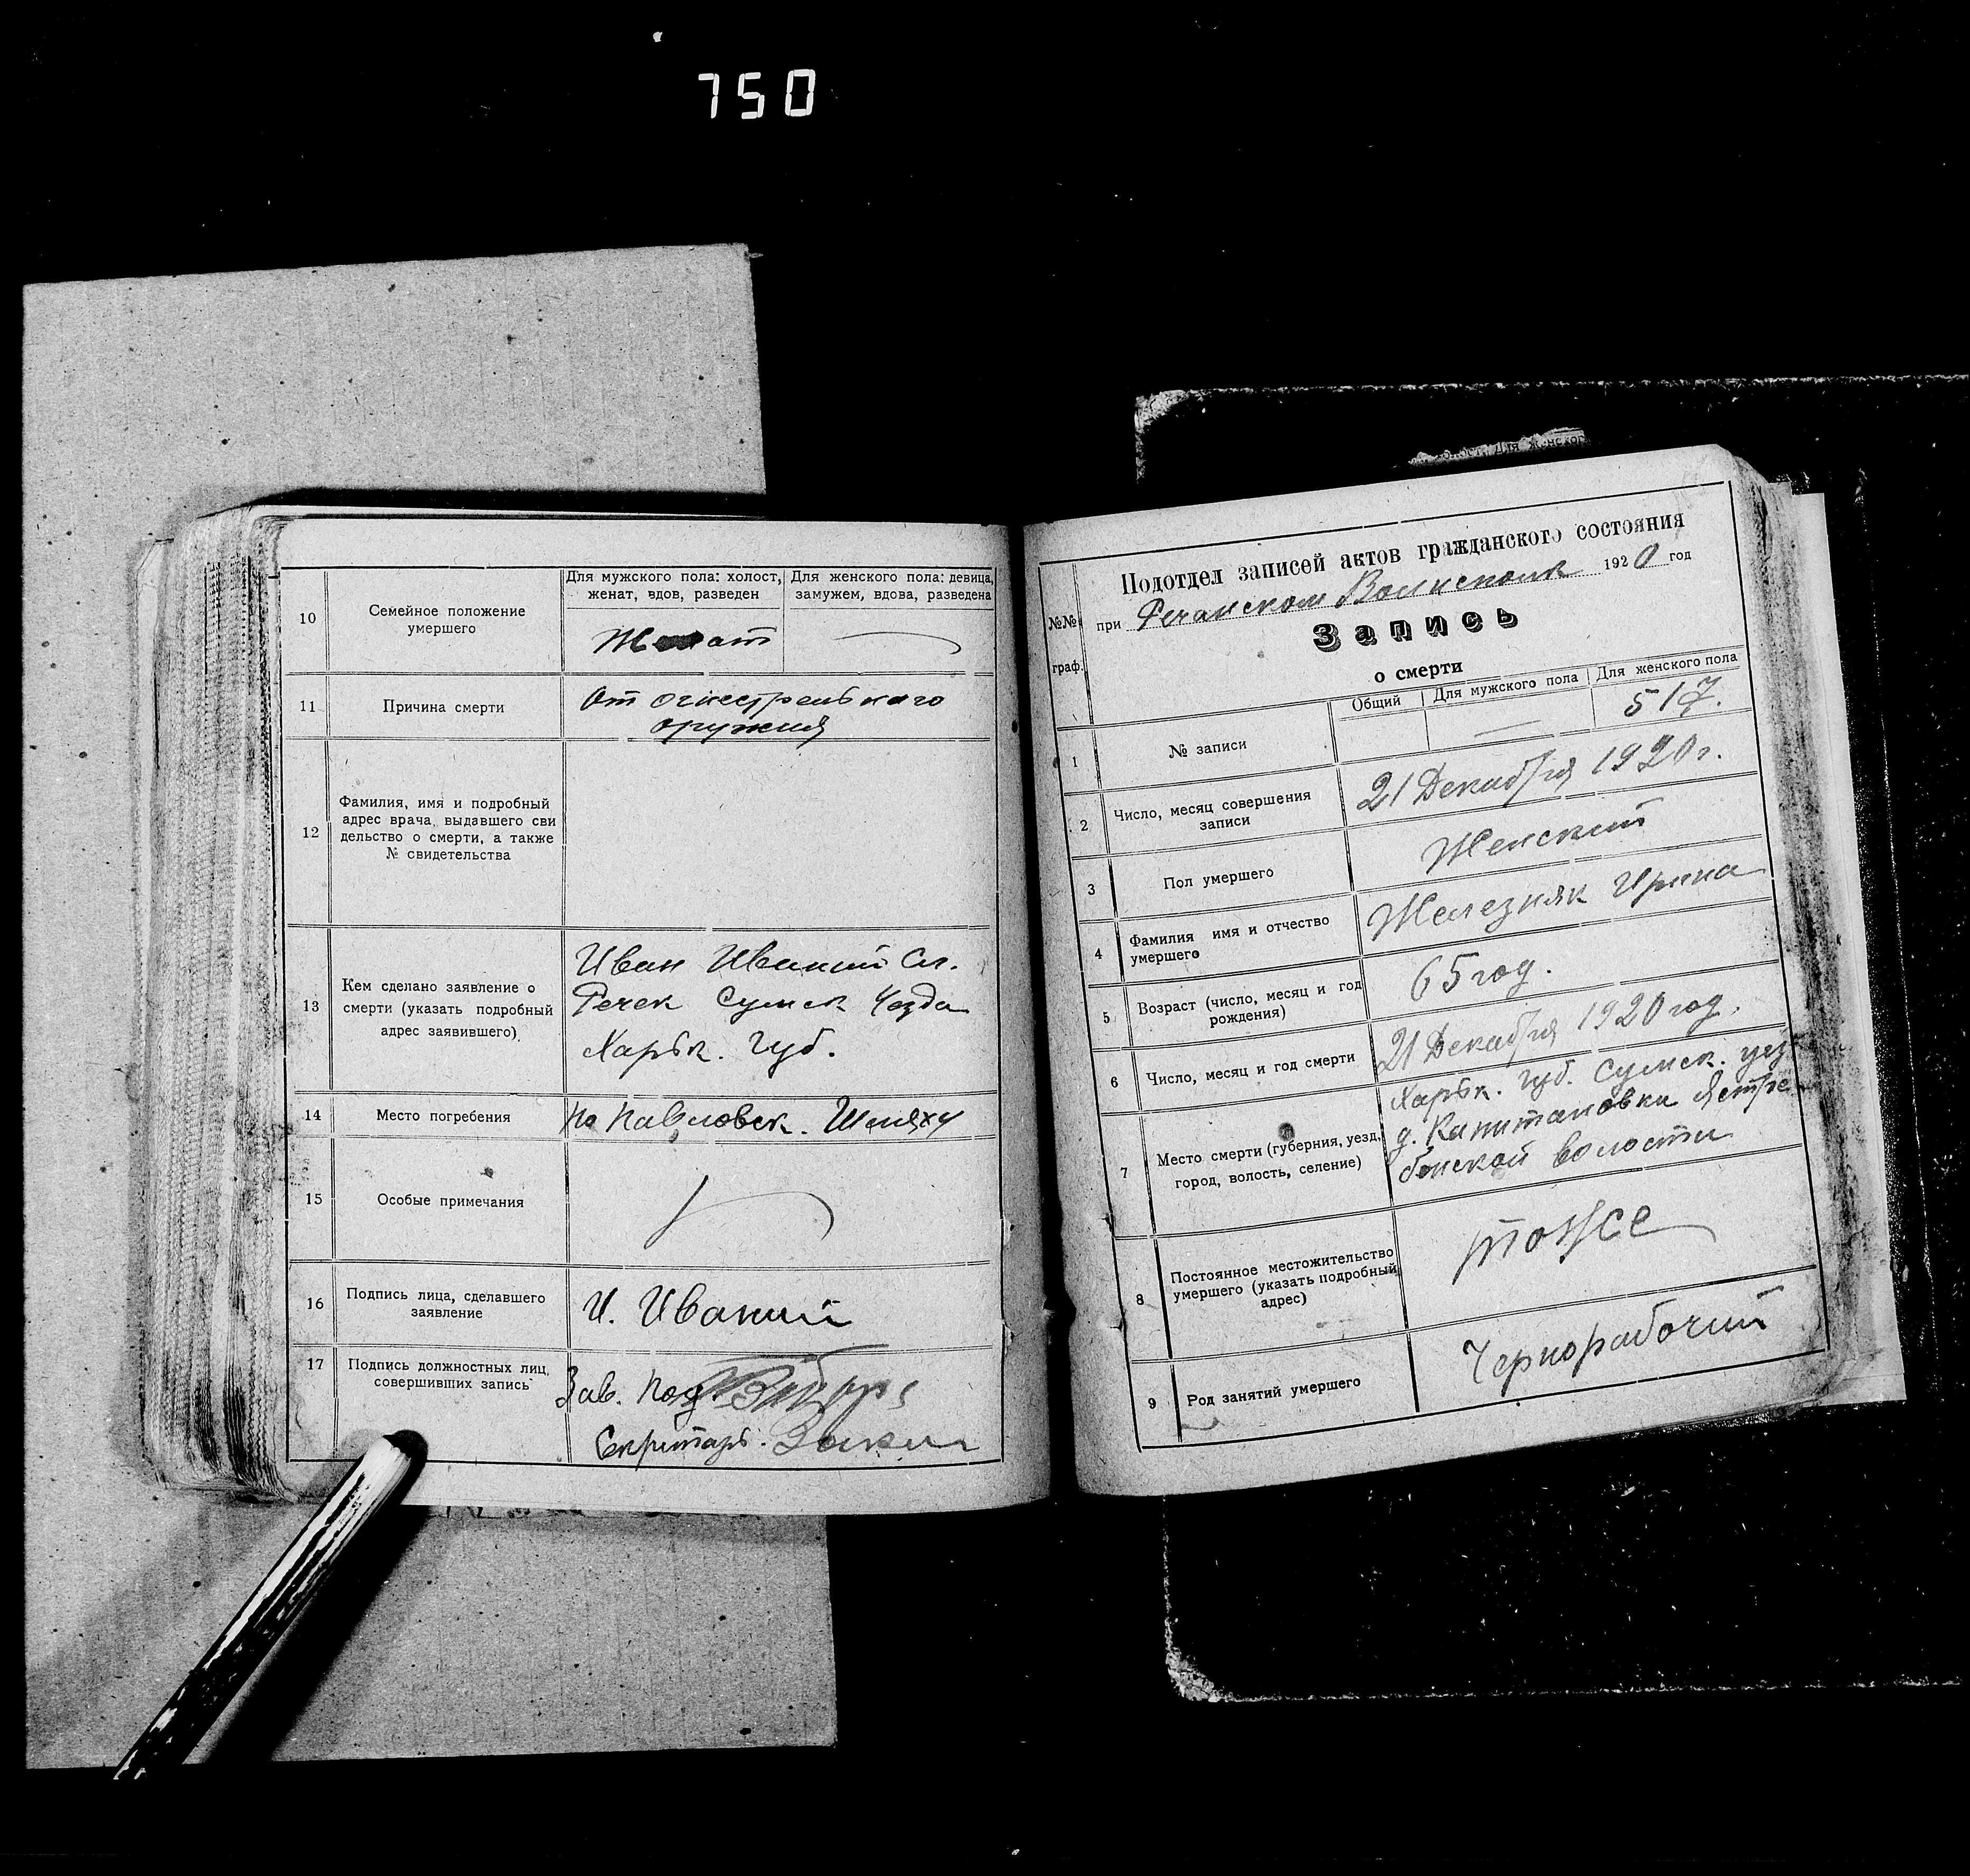 750
10
Семейное положение
умершего
Для мужского пола: холост,
женат, вдов, разведен
Для женского пола: девица,
замужем, вдова, разведена
11
Причина смерти
От огнестрельного
оружия
12
Фамилия, имя и подробный
адрес врача, выдавшего сви
дельство о смерти, а также
№ свидетельства
13
Кем сделано заявление о
смерти (указать подробный
адрес заявившего)
Иван Иваний Сл.
Речек Сумск Уезда
Харьк. Губ.
14
Место погребения
по Павловск. Шляху
15
Особые примечания
16
Подпись лица, сделавшего
заявление
И. Иваний
17
Подпись должностных лиц,
совершивших запись
Зав. Под
Секритарь.
№№
граф.
Подотдел записей актов гражданского состояния
при Речанском Волисполк 1920 год
Запись
о смерти
Общий
Для мужского пола
Для женского пола
1
№ записи
517.
2
Число, месяц совершения
записи
21 Декабря 1920 г.
3
Пол умершего
Женский
4
Фамилия имя и отчество
умершего
Железняк Ирина
5
Возраст (число, месяц и год
рождения)
65 год.
6
Число, месяц и год смерти
21 Декабря 1920 год.
7
Место смерти (губерния, уезд,
город, волость, селение)
Харьк. губ. Сумск. уез
д. Капитановки Ястре
бонской волости
8
Постоянное местожительство
умершего (указать подробный
адрес)
тоже
9
Род занятий умершего
Чернорабочий